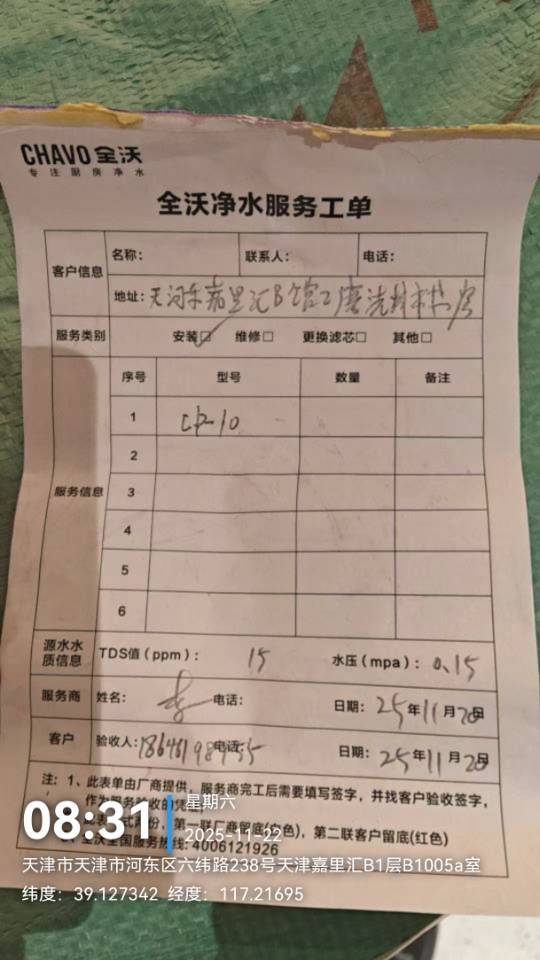 CHAVO 全沃
专注厨房净水
全沃净水服务工单
客户信息 名称： 联系人： 电话：
地址：天河东嘉里汇B
服务类别 安装☑ 维修□ 更换滤芯□ 其他□
服务信息 序号 型号 数量 备注
1 CP-10
2
3
4
5
6
源水水质信息 TDS值（ppm）： 15 水压（mpa）：0.15
服务商 姓名： 电话： 日期：25年11月20日
客户 验收人： 电话： 日期：25年11月20日
注：1、此表单由厂商提供，服务商完工后需要填写签字，并找客户验收签字，
作为服务验收的凭
式两份，第一联厂商留底(白色)，第二联客户留底(红色)
全沃全国服务热线：4006121926
08:31
星期六
2025-11-22
天津市天津市河东区六纬路238号天津嘉里汇B1层B1005a室
纬度：39.127342 经度：117.21695